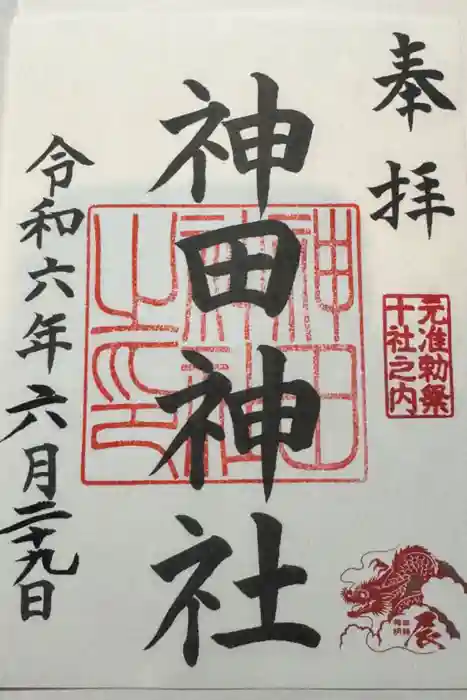 奉拝
元准勅祭
十社之内
辰
神田神社
神田
神社
之印
令和六年六月二十九日